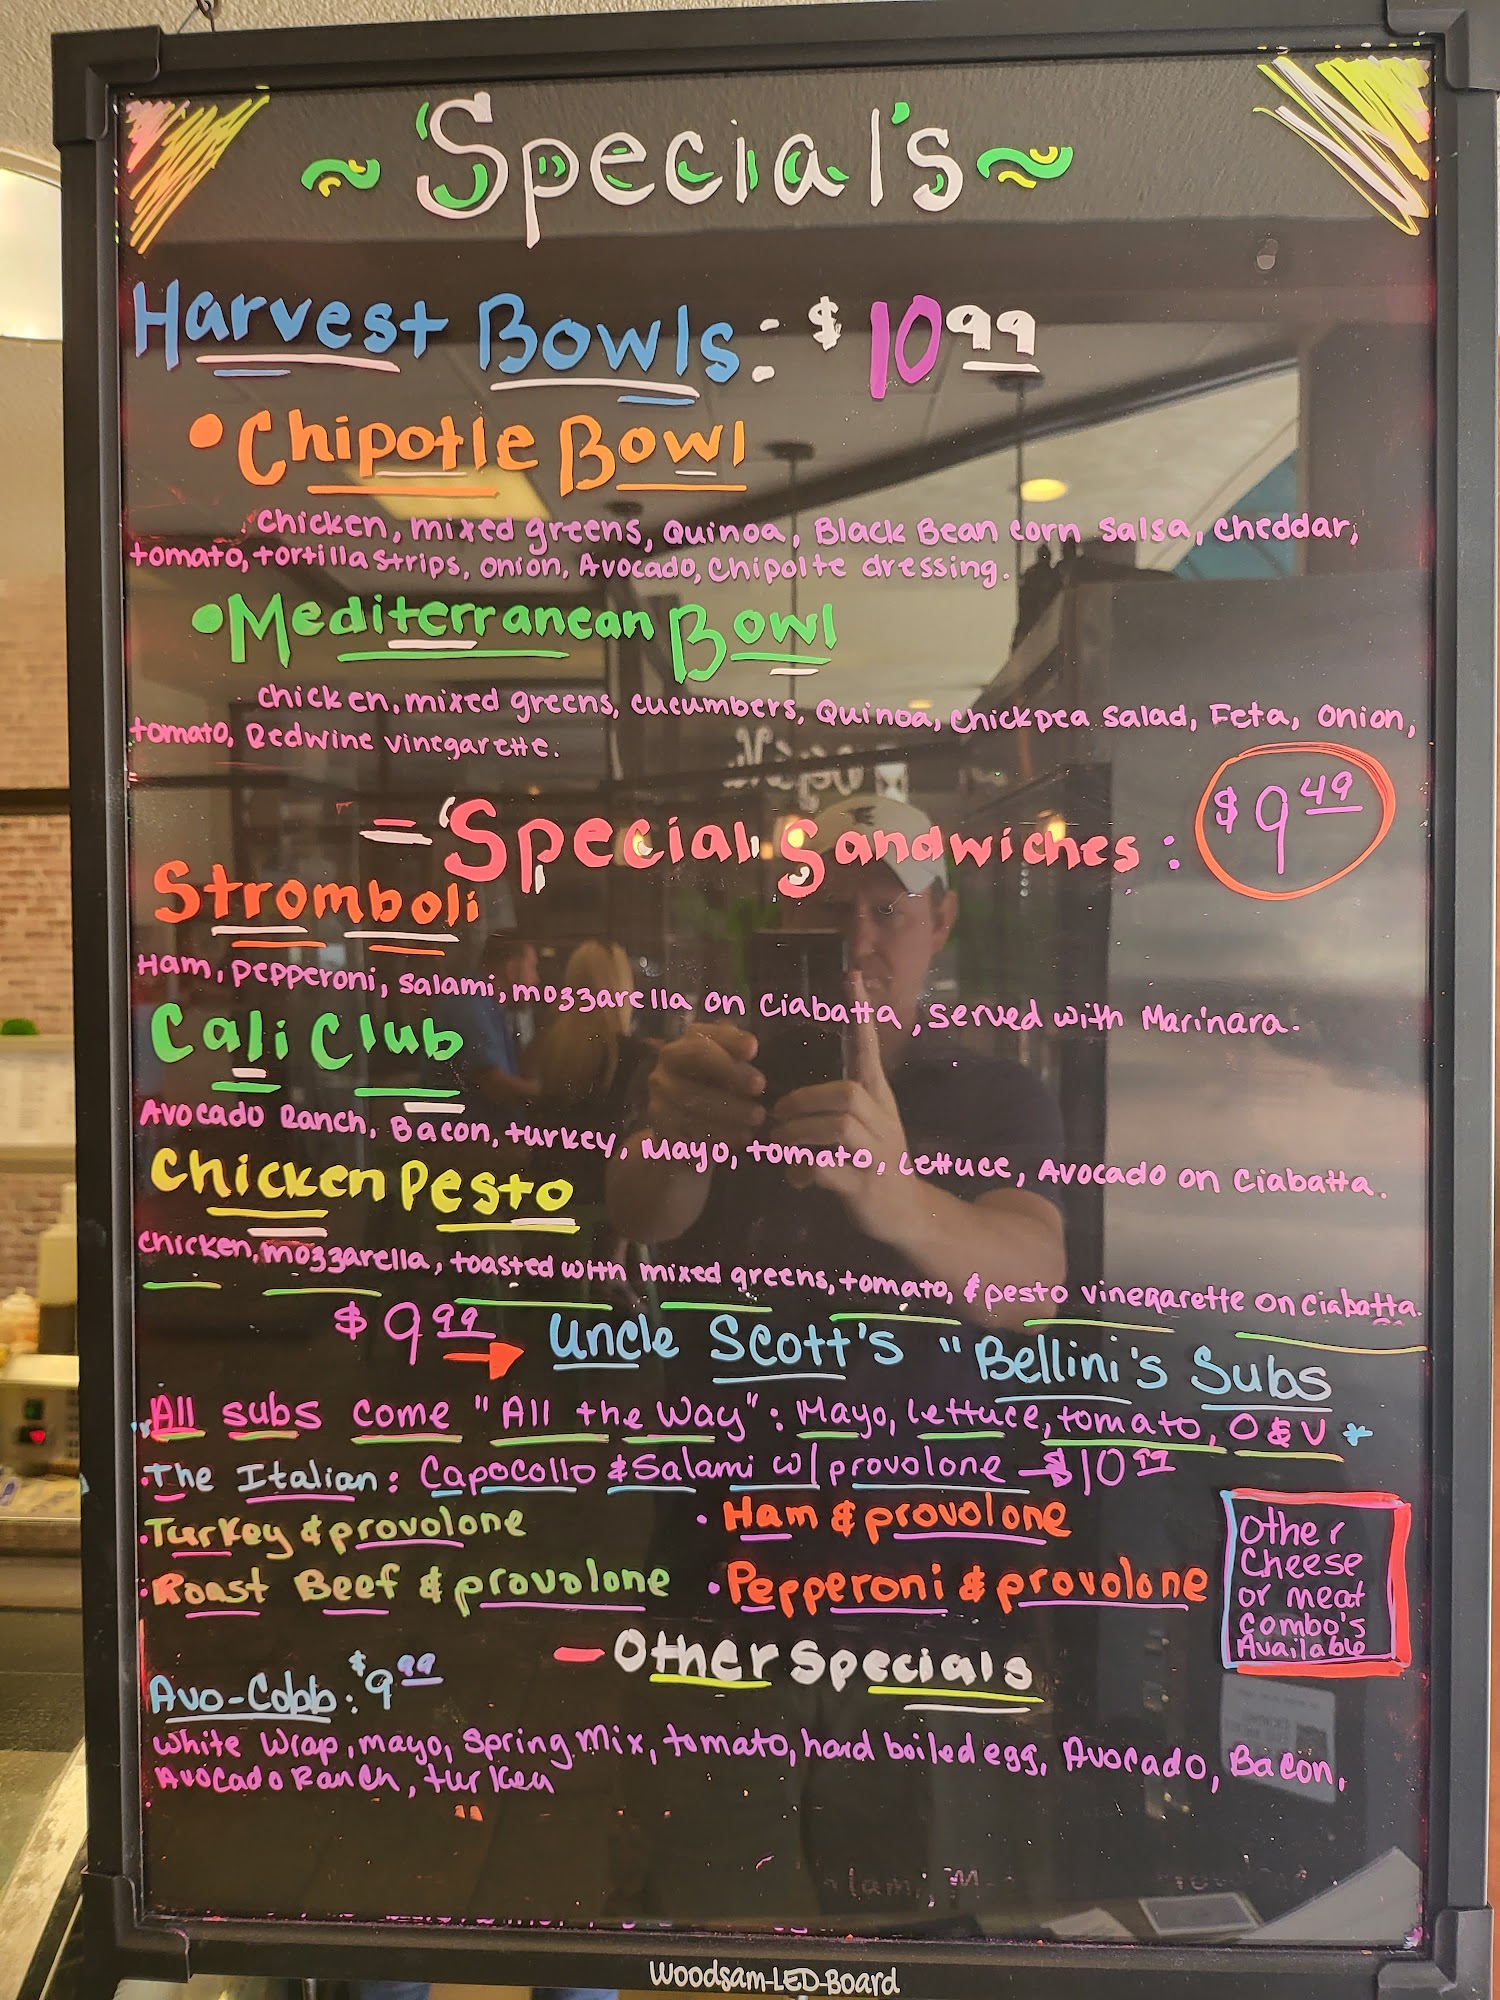 ~ Special's ~
Harvest Bowls: $10 99
• Chipotle Bowl
chicken, mixed greens, Quinoa, Black Bean corn Salsa, cheddar,
tomato, tortilla strips, onion, Avocado, Chipolte dressing.
• Mediterranean Bowl
chicken, mixed greens, cucumbers, Quinoa, chickpea salad, Feta, onion,
tomato, Redwine vinegarette.
= Special Sandwiches: $9 49
Stromboli
Ham, pepperoni, salami, mozzarella on Ciabatta, served with Marinara.
Cali Club
Avocado Ranch, Bacon, turkey, Mayo, tomato, Lettuce, Avocado on Ciabatta.
Chicken Pesto
chicken, mozzarella, toasted with mixed greens, tomato, & pesto vinegarette on Ciabatta.
$9 99 → Uncle Scott's "Bellini's Subs
"All subs come "All the Way": Mayo, lettuce, tomato, O & V *
• The Italian: Capocollo & Salami w/ provolone - $10 99
• Turkey & provolone • Ham & provolone
• Roast Beef & provolone • Pepperoni & provolone
Other
Cheese
or meat
Combo's
Available
- Other Specials
Avo-Cobb: $9 99
White Wrap, mayo, Spring Mix, tomato, hard boiled egg, Avocado, Bacon,
Avocado Ranch, turkey
Woodsam-LED-Board